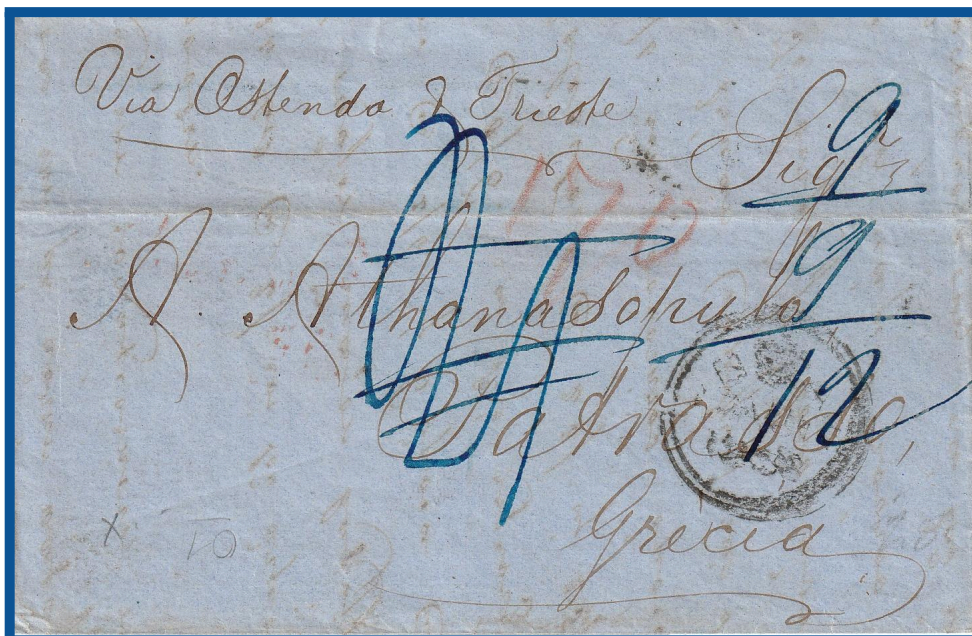 Via Ostenda & Trieste
Sigr
9
170
9
A. Athanasopulo
12
Patrasso,
Grecia
x 10